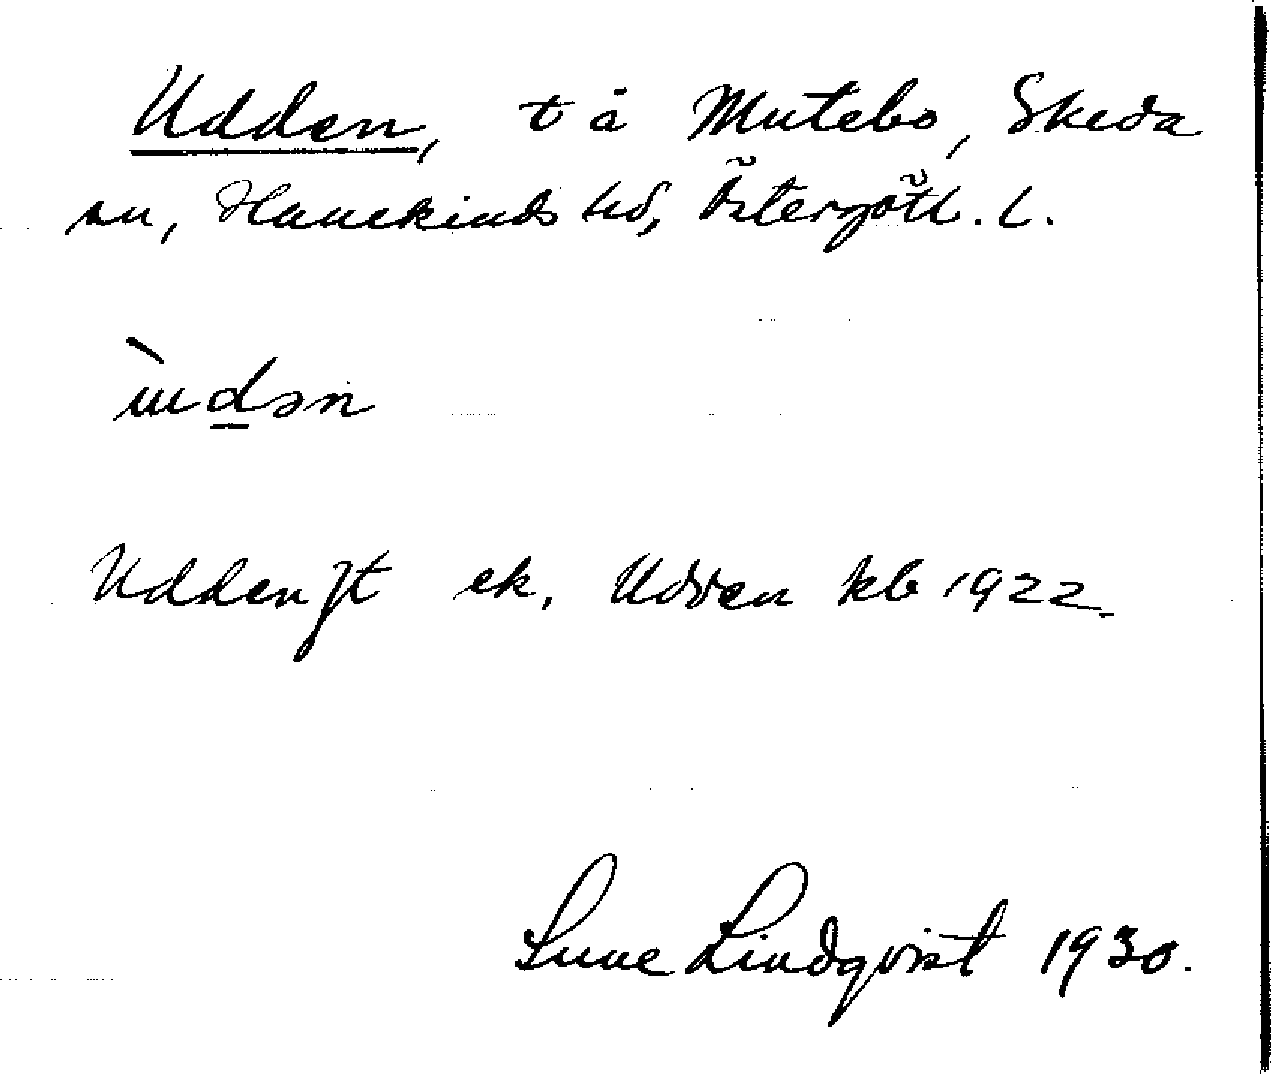 Udden, t å Mutebo, Skeda
sn, Hanekinds hd, Östergötl. l.
ùdən
Udden ek, Udden kb 1922.
Sune Lindqvist 1930.